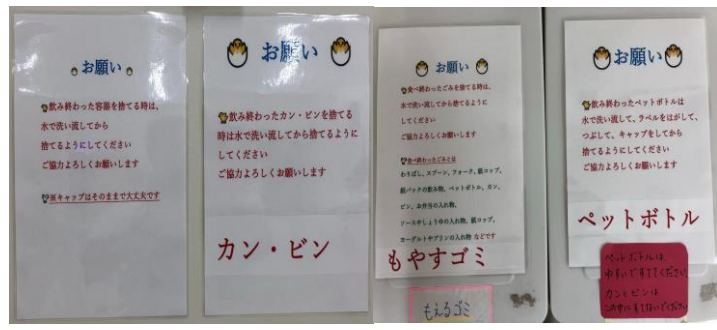 お願い
飲み終わった容器を捨てる時は、
水で洗い流してから
捨てるようにしてください
ご協力よろしくお願いします
※キャップはそのままで大丈夫です
お願い
飲み終わったカン・ビンを捨てる
時は水で洗い流してから捨てるように
してください
ご協力よろしくお願いします
カン・ビン
お願い
食べ終わったごみを捨てる時は、
水で洗い流してから捨てるように
してください
ご協力よろしくお願いします
食べ終わったごみとは
わりばし、スプーン、フォーク、紙コップ、
紙パックの飲み物、ペットボトル、カン、
ビン、お弁当の入れ物、
ソースやしょうゆの入れ物、紙コップ、
ヨーグルトやプリンの入れ物 などです
もやすゴミ
もえるゴミ
お願い
飲み終わったペットボトルは
水で洗い流して、ラベルをはがして、
つぶして、キャップをしてから
捨てるようにしてください
ご協力よろしくお願いします
ペットボトル
ペットボトルは
カンとビンは